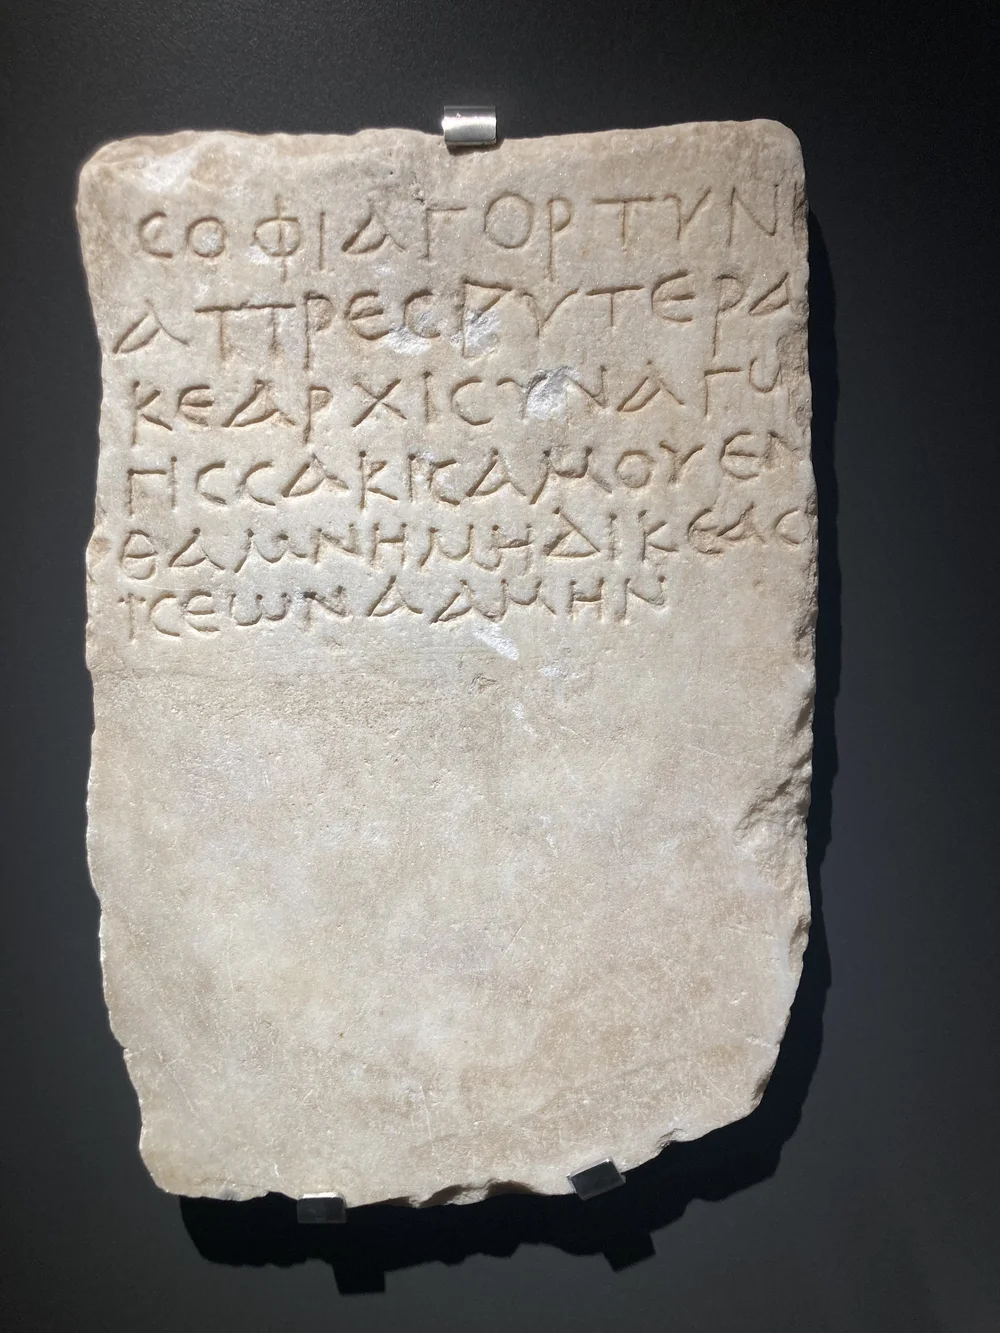 CΟΦΙΑΓΟΡΤΥΝΙ
ΑΠΡΕCΒΥΤΕΡΑ
ΚΕΑΡΧΙCΥΝΑΓΩ
ΓΗCCΑΚΙCΑΜΟΥΕΝ
ΘΑΜΝΗΜΗΔΙΚΕΑC
ΙCΕΩΝΑΑΜΗΝ